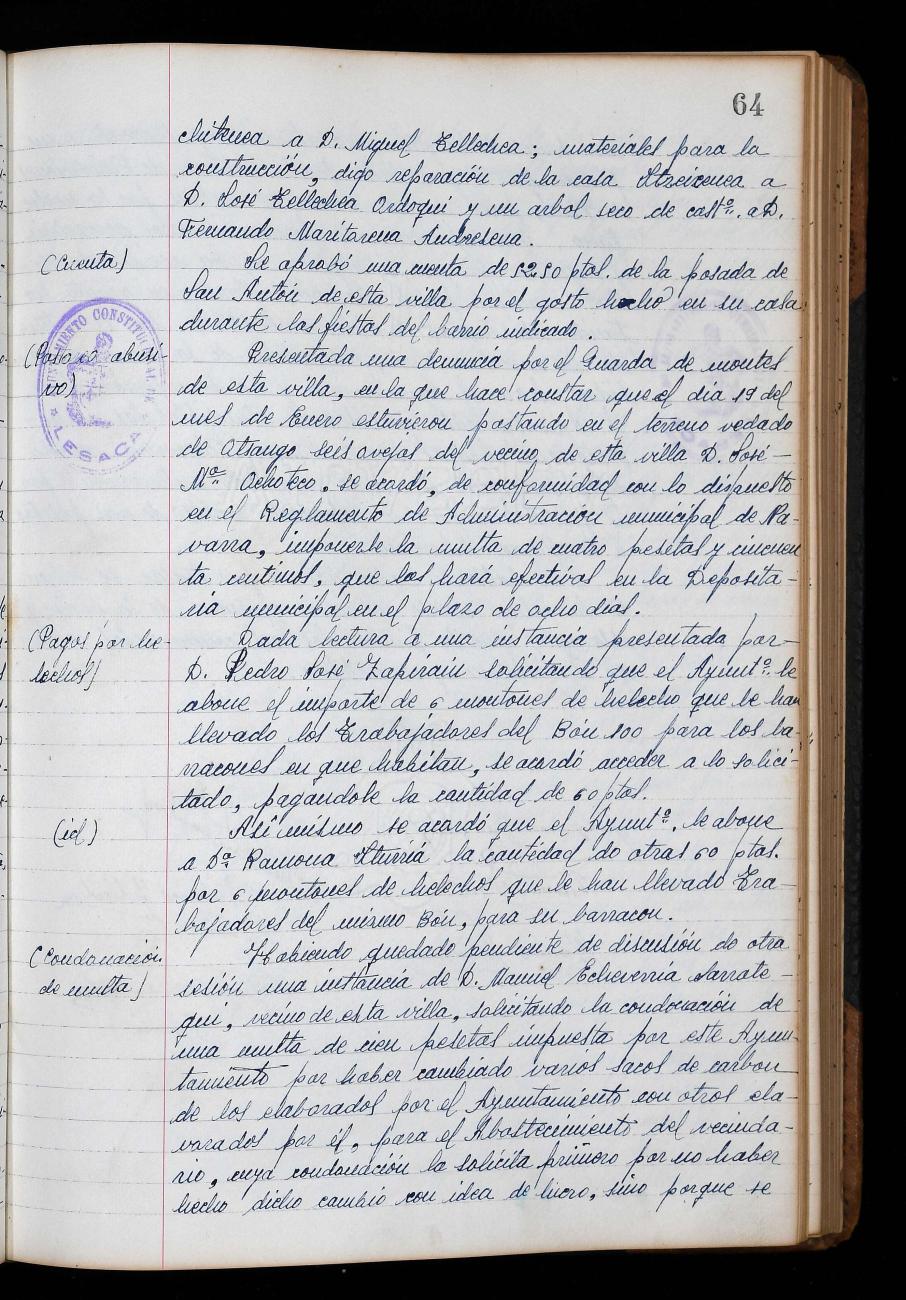 64
chitenea a D. Miguel Tellechea; materiales para la
construcción, digo reparación de la casa a
D. José Tellechea Ordoqui y un arbol seco de castº. a D.
Fernando Maritorena Andresena.
(Cuenta)
Se aprobó una cuenta de 52.50 ptas. de la posada de
San Antón de esta villa por el gasto hecho en su casa
durante las fiestas del barrio indicado.
(Pastoreo abusi-
vo)
AYUNTAMIENTO CONSTITUCIONAL DE
LESACA
Presentada una denuncia por el Guarda de montes
de esta villa, en la que hace constar que el dia 19 del
mes de Enero estuvieron pastando en el terreno vedado
de Otsango seis ovejas del vecino de esta villa D. José-
Mª Ochoteco, se acordó, de conformidad con lo dispuesto
en el Reglamento de Administración municipal de Na-
varra, imponerle la multa de cuatro pesetas y cincuen
ta centimos, que las hará efectivas en la Deposita-
ria municipal en el plazo de ocho dias.
(Pagos por he-
lechos)
Dada lectura a una instancia presentada por-
D. Pedro José Zapirain solicitando que el Ayuntº. le
abone el importe de 6 montones de helecho que le han
llevado los Trabajadores del Bón 100 para los ba-
rracones en que habitan, se acordó acceder a lo solici-
tado, pagándole la cantidad de 60 ptas.
(id)
Asi mismo se acordó que el Ayuntº. le abone
a Dª Ramona Iturria la cantidad de otras 60 ptas.
por 6 montones de helechos que le han llevado Tra-
bajadores del mismo Bón, para su barracon.
(Condonación
de multa)
Habiendo quedado pendiente de discusión de otra
sesión una instancia de D. Manuel Echeverria Larrate-
gui, vecino de esta villa, solicitando la condonación de
una multa de cien pesetas impuesta por este Ayun-
tamiento por haber cambiado varios sacos de carbon
de los elaborados por el Ayuntamiento con otros ela-
vorados por él, para el Abastecimiento del vecinda-
rio, cuya condonación la solicita primero por no haber
hecho dicho cambio con idea de lucro, sino porque se